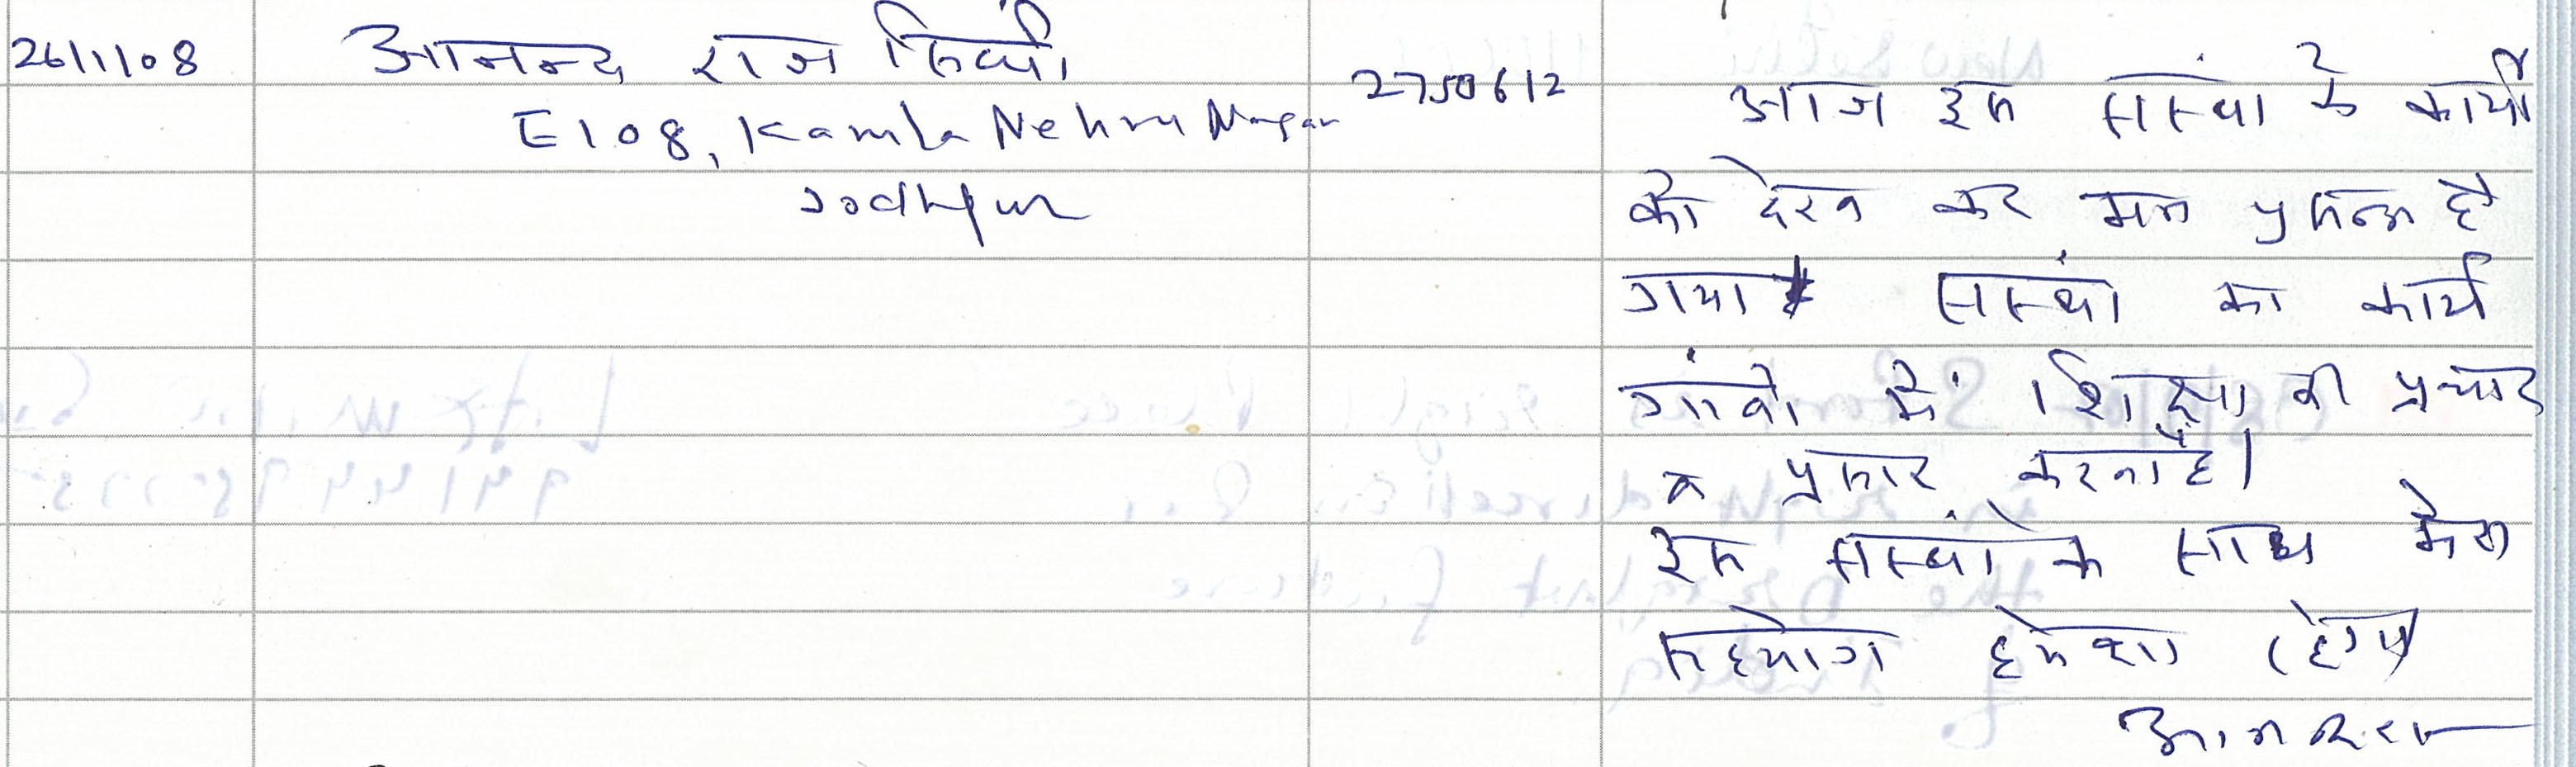 26/1/08 आनन्द राज सिंघवी 2750612
E108, Kamla Nehru Nagar
Jodhpur
आज इस संस्था के कार्यो
को देख कर मन प्रसन्न हो
गया संस्था का कार्य
गांवो में शिक्षा को प्रचार
व प्रसार करना है।
इस संस्था के साथ मेरा
सहयोग हमेशा रहेगा
आनन्दराज